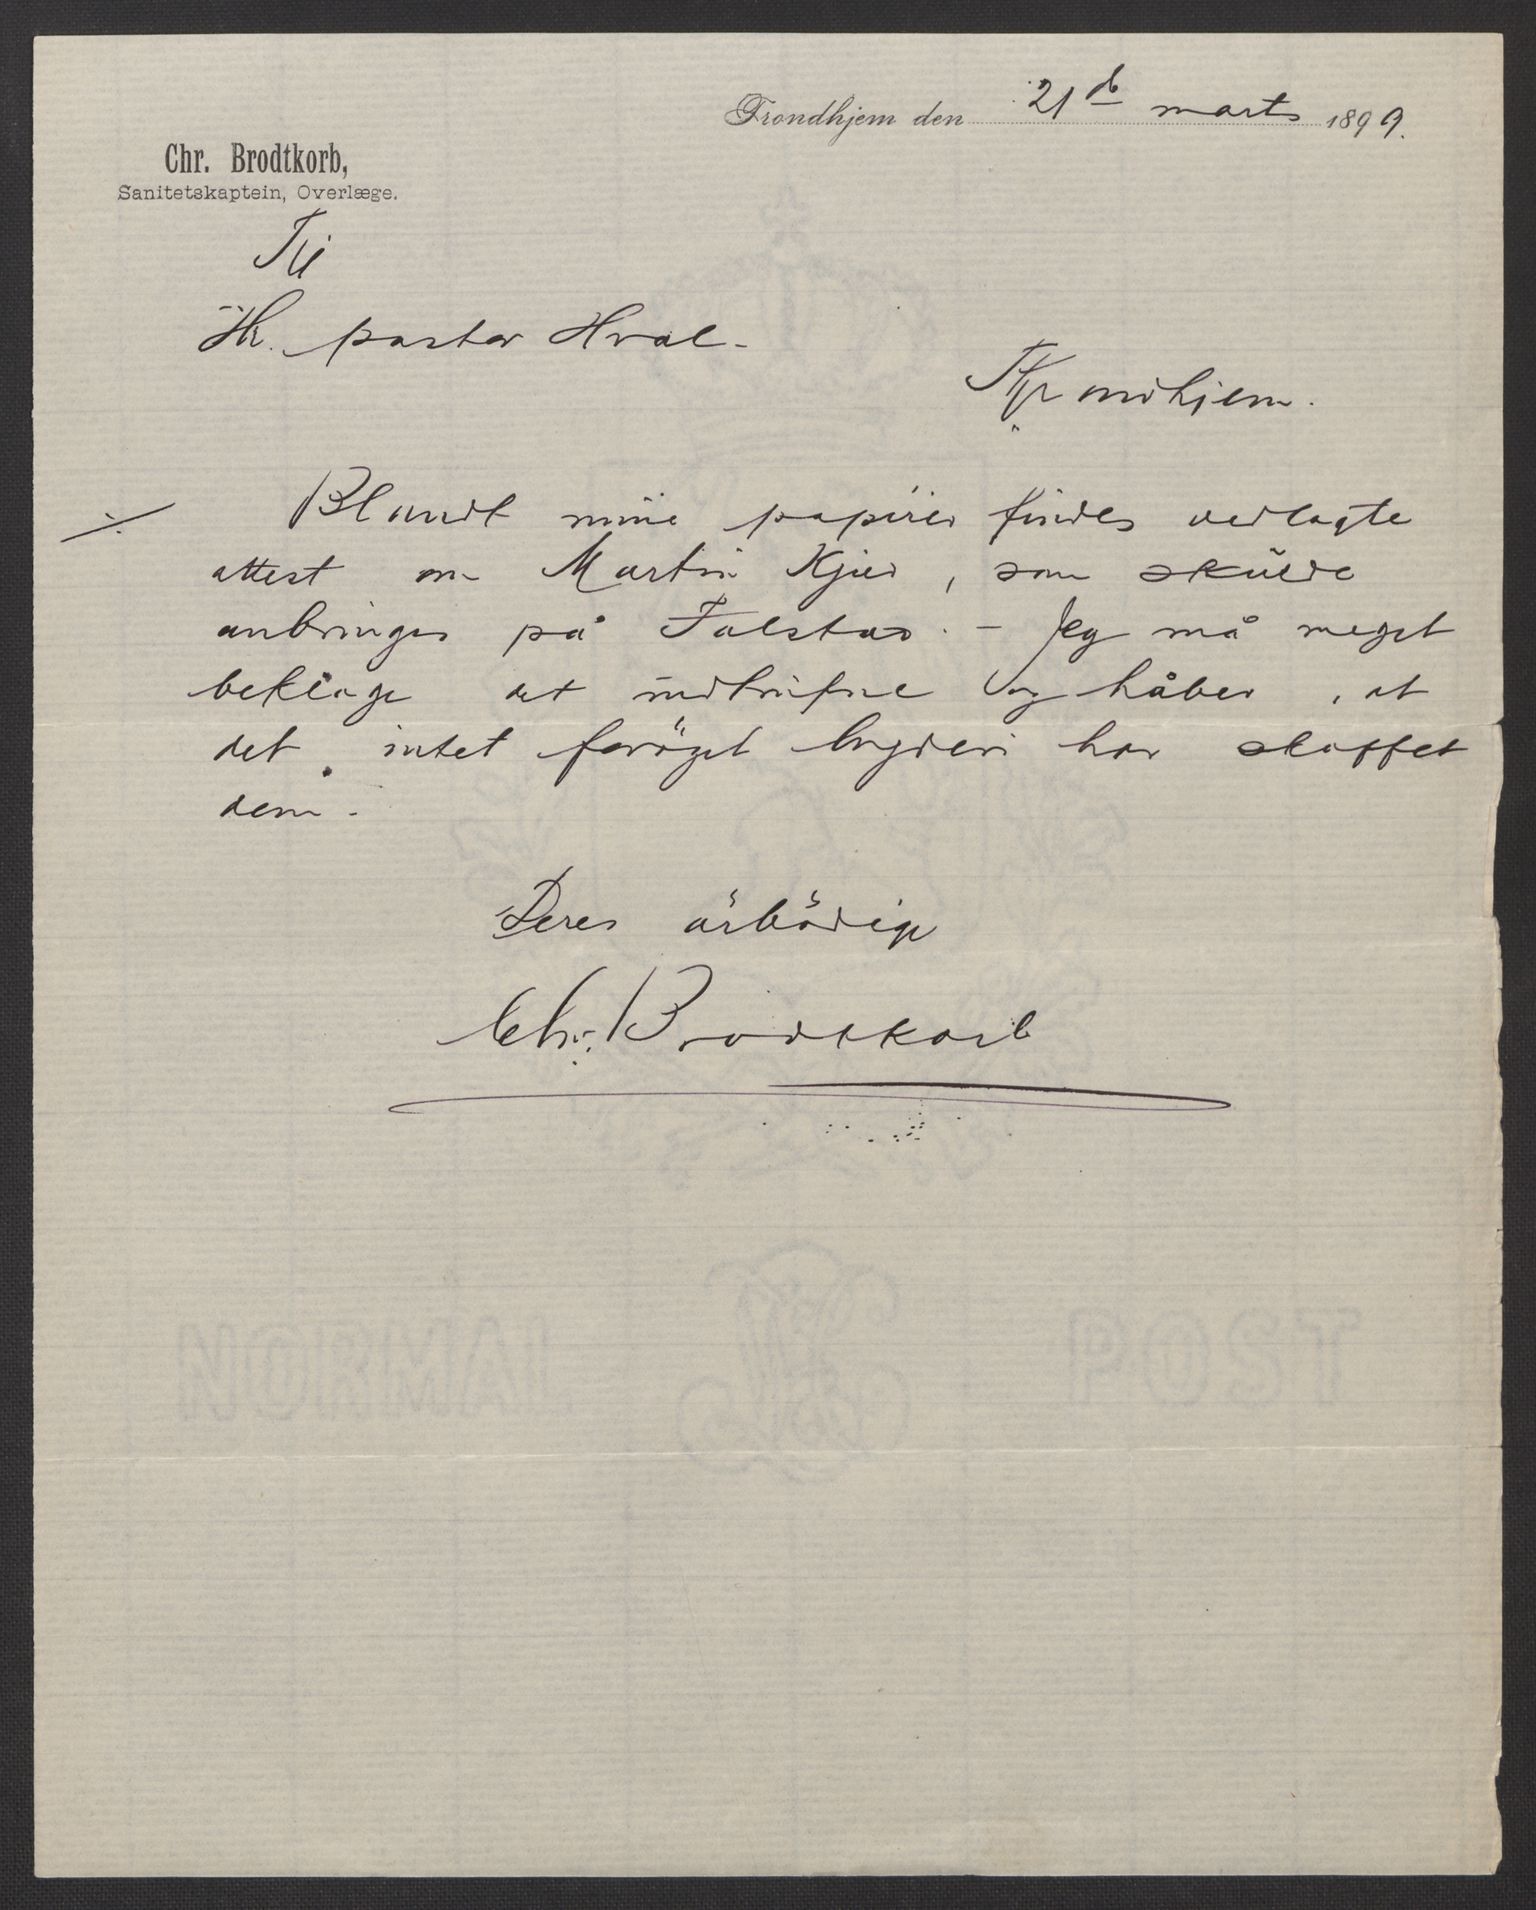 Trondhjem den 21de marts 1899.
Chr. Brodtkorb,
Sanitetskaptein, Overlæge.
Til
Hr. pastor Hval.
Trondhjem.
./. Blandt mine papirer findes vedlagte
attest om Martin Kjær, som skulde
anbringes på Falstad. – Jeg må meget
beklage det indtrufne og håber, at
det intet forøget bryderi har skaffet
dem.
Deres ärbödige
Chr. Brodtkorb
NORMAL POST